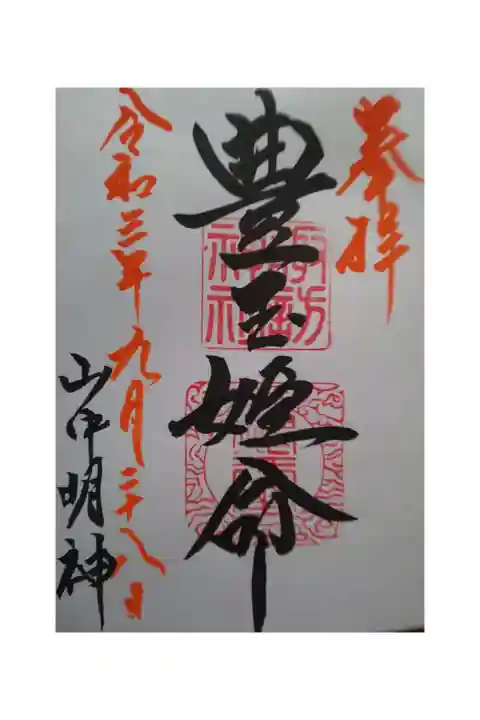 奉拝
豊玉姫命
諏訪神社
令和三年九月二十八日
山中明神